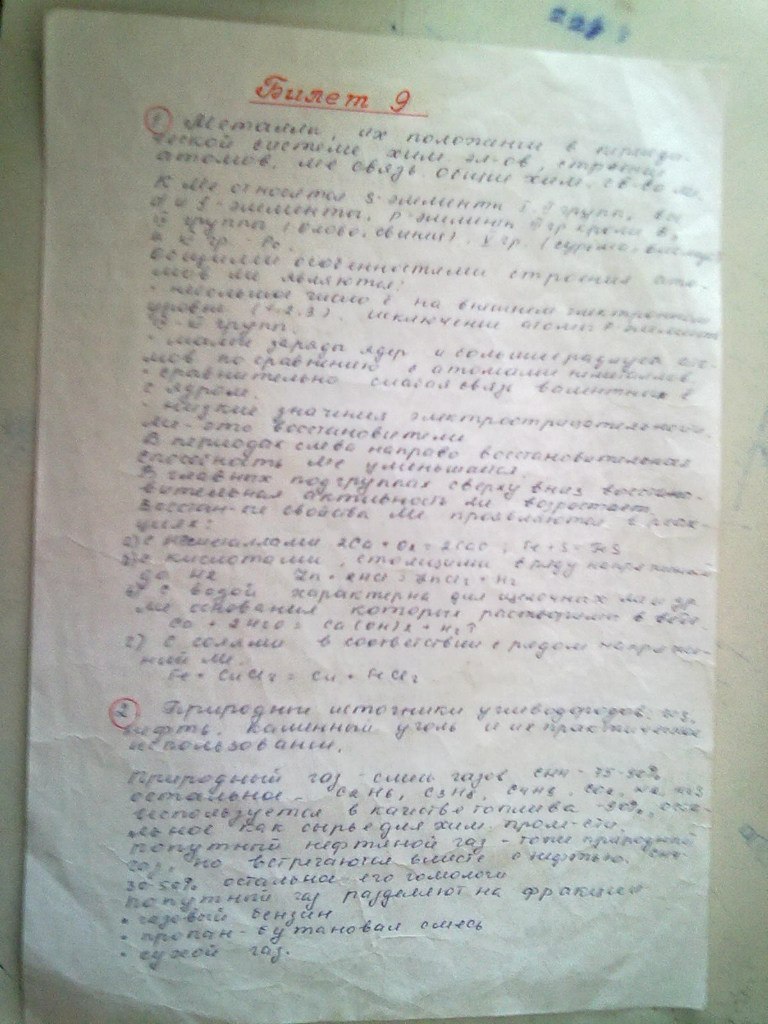 Билет 9
1 Металлы, их положение в периоди-
ческой системе хим. эл-ов, строение
атомов, Ме связь. Общие хим. св-ва ме.
К Ме относятся S-элементы I, II групп, все
d и f-элементы, p-элементы III гр кроме B,
IV группы (олово, свинец), V гр. (сурьма, висмут)
и VI гр. Po.
Общими особенностями строения ато-
мов ме являются:
- небольшое число ē на внешнем электронном
уровне (1, 2, 3). исключение атомы p-элементов
IV-VI групп.
- малые заряды ядер и большие радиусы ато-
мов по сравнению с атомами неметаллов.
- сравнительно слабая связь валентных ē
с ядром.
- низкие значения электроотрицательности.
Ме-это восстановители
В периодах слева направо восстановительная
способность Ме уменьшается.
В главных подгруппах сверху вниз восстано-
вительная активность Ме возрастает.
Восстан-ые свойства Ме проявляются в реак-
циях:
а) с неметаллами 2Ca + O2 = 2CaO; Fe + S = FeS
б) с кислотами, стоящими в ряду напряжений
до H2 Zn + 2HCl = ZnCl2 + H2
в) с водой характерна для щелочных ме и др
ме основания которых растворимы в воде.
Ca + 2H2O = Ca(OH)2 + H2↑
г) с солями в соответствии с рядом напряже-
ний Ме.
Fe + CuCl2 = Cu + FeCl2
2 Природные источники углеводородов: газ,
нефть, каменный уголь и их практическое
использование.
Природный газ - смесь газов CH4 - 75-90%
остальное - C2H6, C3H8,
используется в качестве топлива - 90%, оста-
льное как сырье для хим. пром-сти.
Попутный нефтяной газ - тоже природный
газ, но встречаются вместе с нефтью. CH4
30-50% остальное его гомологи
Попутный газ разделяют на фракции
• газовый бензин
• пропан-бутановая смесь
• сухой газ.